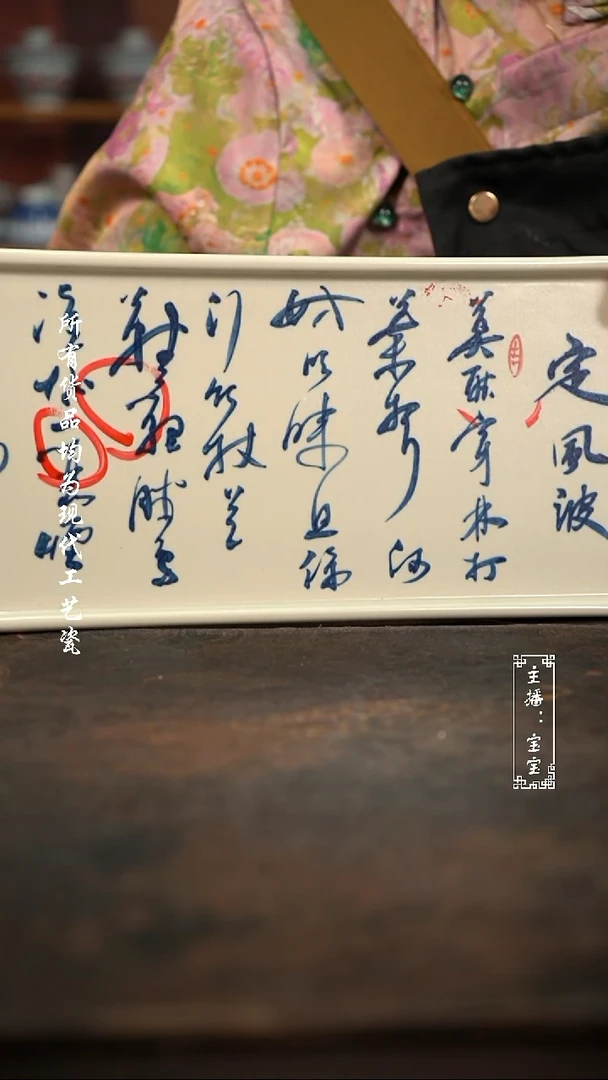 定風波
莫聽穿林打
葉聲何
妨吟嘯且徐
行竹杖芒
鞋輕勝馬
誰怕
所有货品均为现代工艺瓷
主播：宝宝